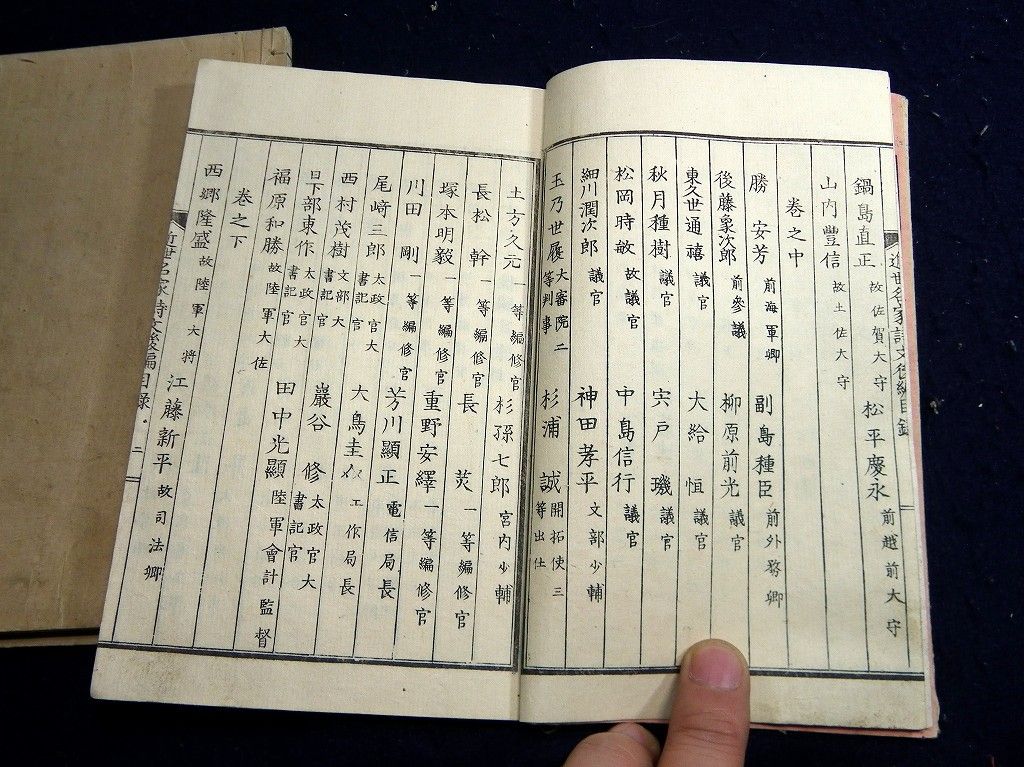 近世名家詩文後編目錄
鍋島直正 故佐賀大守 松平慶永 前越前大守
山內豐信 故土佐大守
卷之中
勝安芳 前海軍卿 副島種臣 前外務卿
後藤象次郎 前參議 柳原前光 議官
東久世通禧 議官 大給恒 議官
秋月種樹 議官 宍戶璣 議官
松岡時敏 故議官 中島信行 議官
細川潤次郎 議官 神田孝平 文部少輔
玉乃世履 大審院二等判事 杉浦誠 開拓使三等出仕
土方久元 一等編修官 杉孫七郎 宮內少輔
長松幹 一等編修官 長炗 一等編修官
塚本明毅 一等編修官 重野安繹 一等編修官
川田剛 一等編修官 芳川顯正 電信局長
尾﨑三郎 太政官大書記官 大鳥圭介 工作局長
西村茂樹 文部大書記官 巖谷修 太政官大書記官
日下部東作 太政官大書記官 田中光顯 陸軍會計監督
福原和勝 故陸軍大佐
卷之下
西鄉隆盛 故陸軍大將 江藤新平 故司法卿
近世名家詩文後編目錄 二